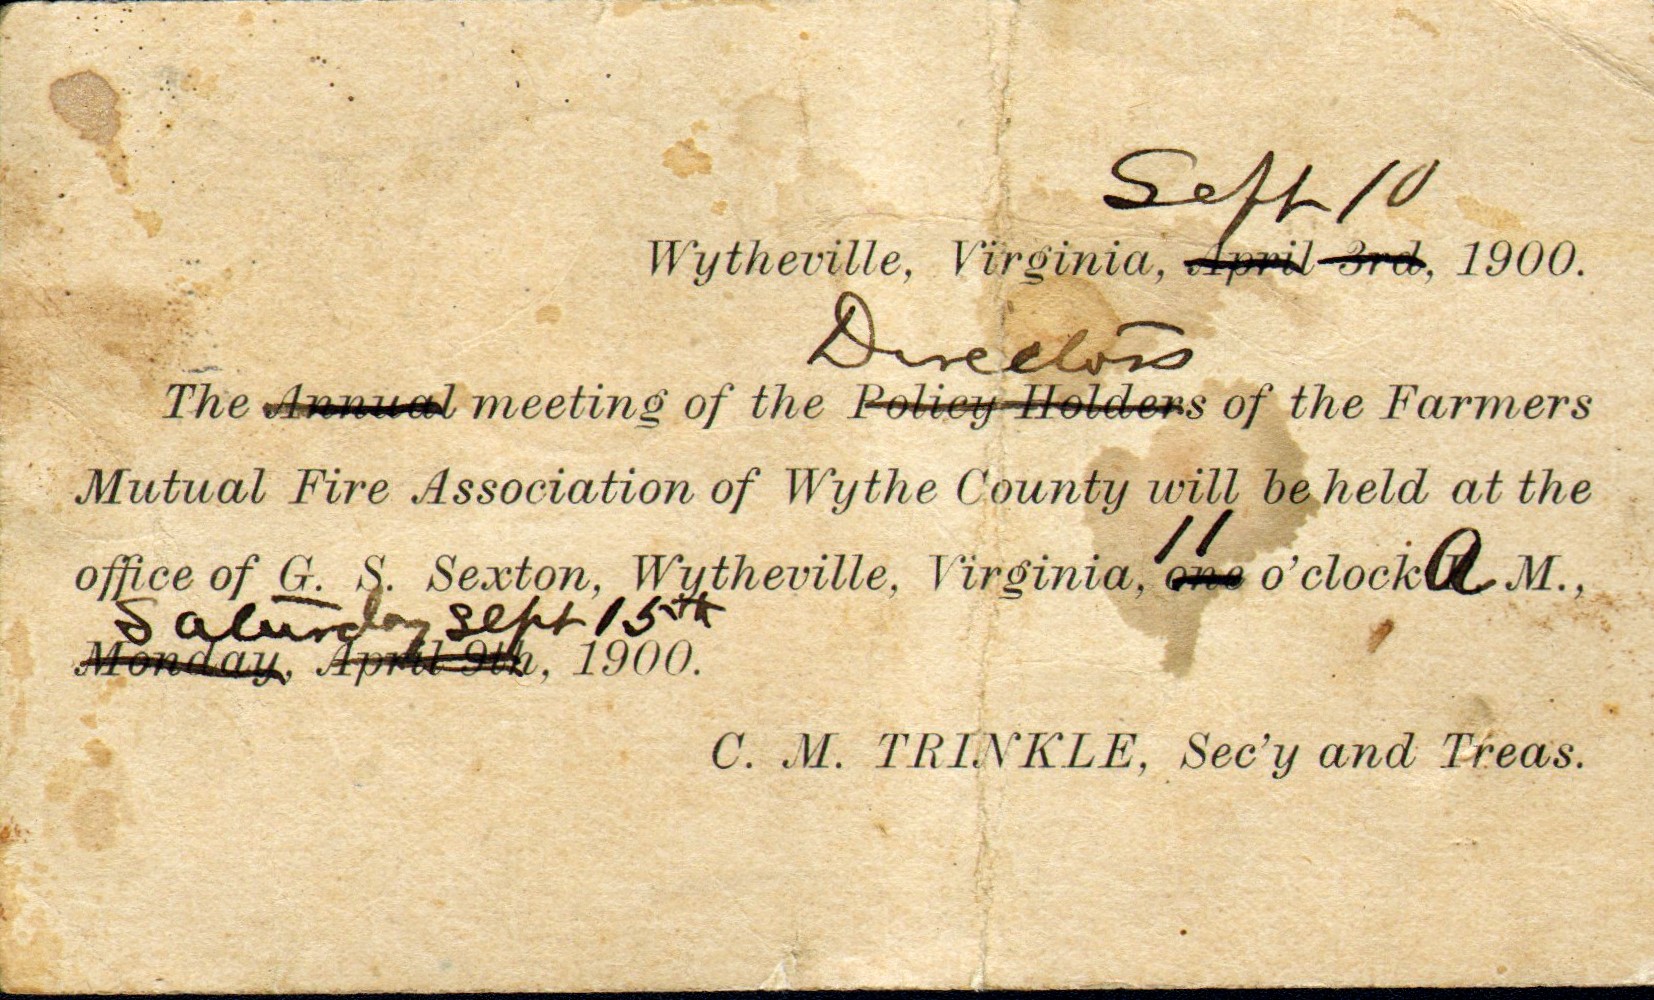 Sept 10
Wytheville, Virginia, April 3rd, 1900.
Directors
The Annual meeting of the Policy Holders of the Farmers
Mutual Fire Association of Wythe County will be held at the
11
office of G. S. Sexton, Wytheville, Virginia, one o'clock A M.,
Saturday Sept 15th
Monday, April 9th, 1900.
C. M. TRINKLE, Sec'y and Treas.